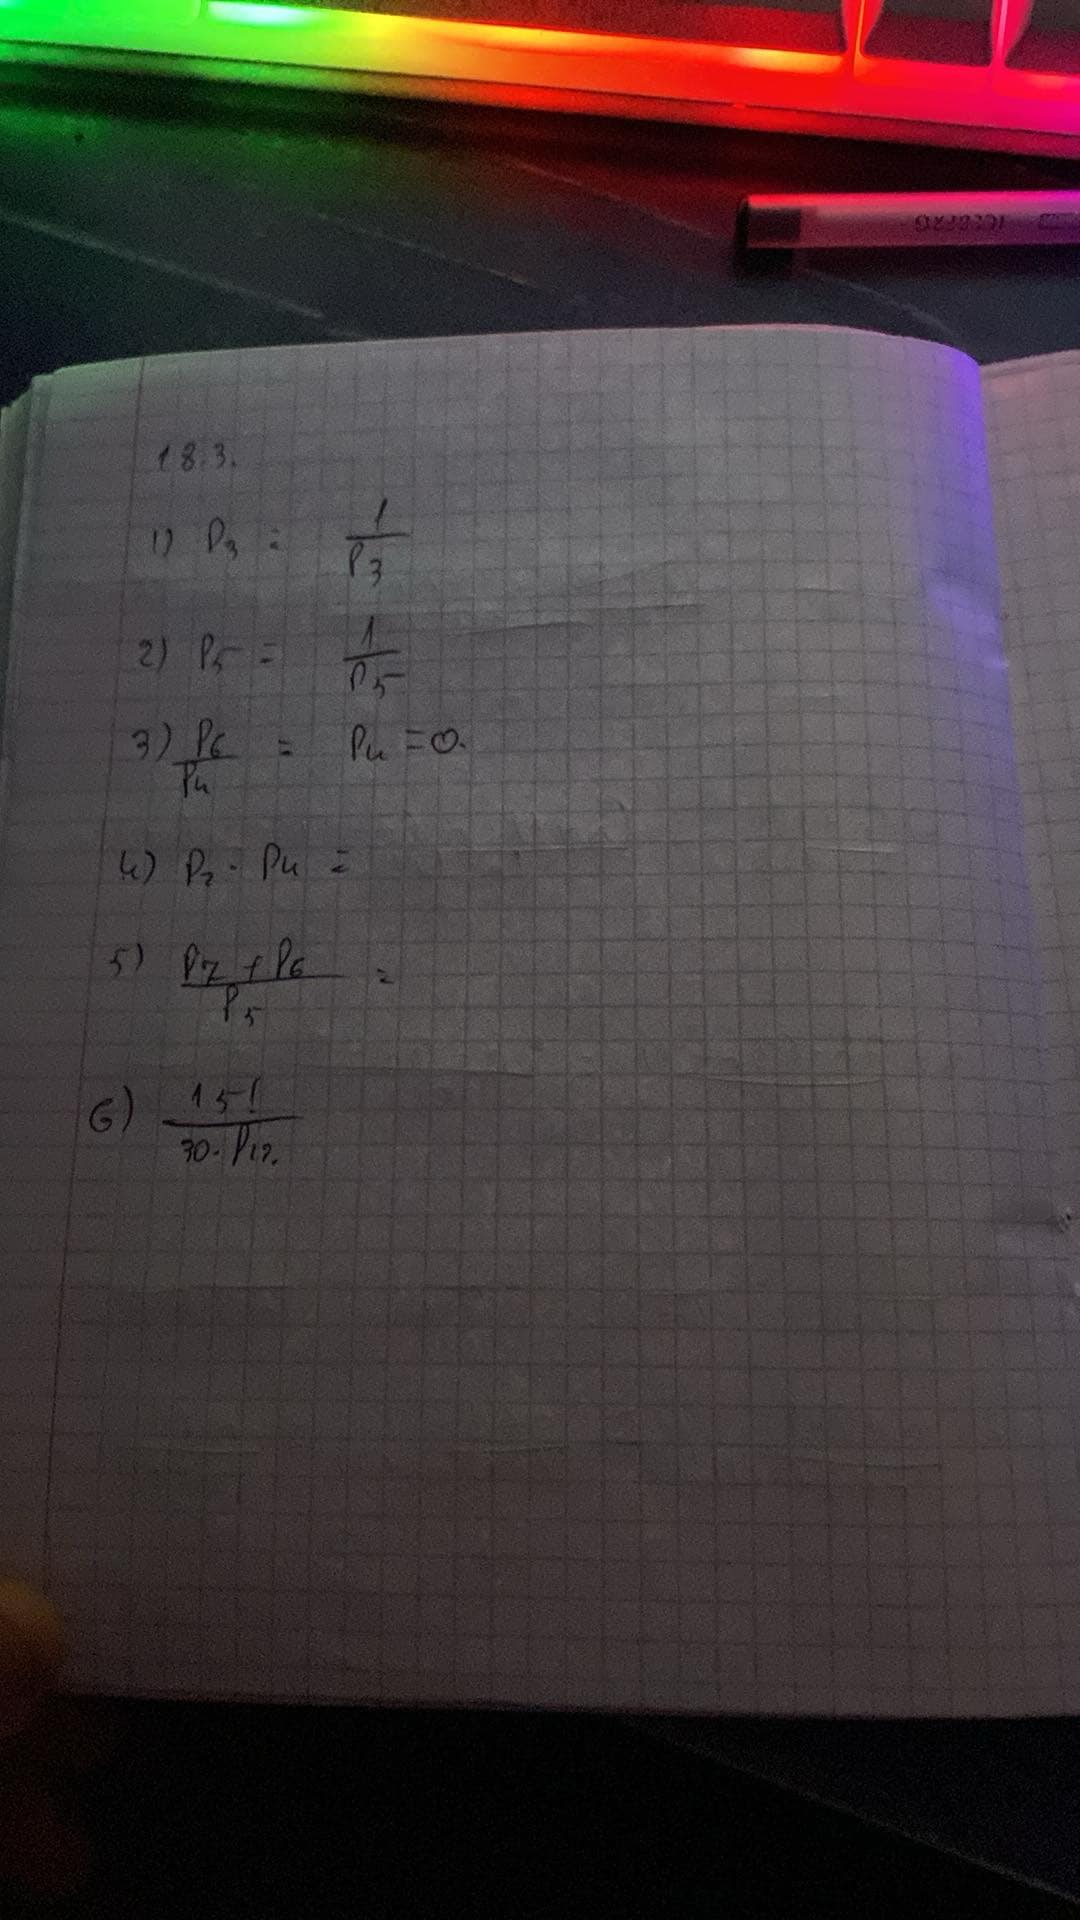 18.3.
1) P3 = 1/P3
2) P5 = 1/P5
3) P6/P4 = P4 = 0.
4) P2 · P4 =
5) P7 + P6/P5 =
6) 15!/30· P12.